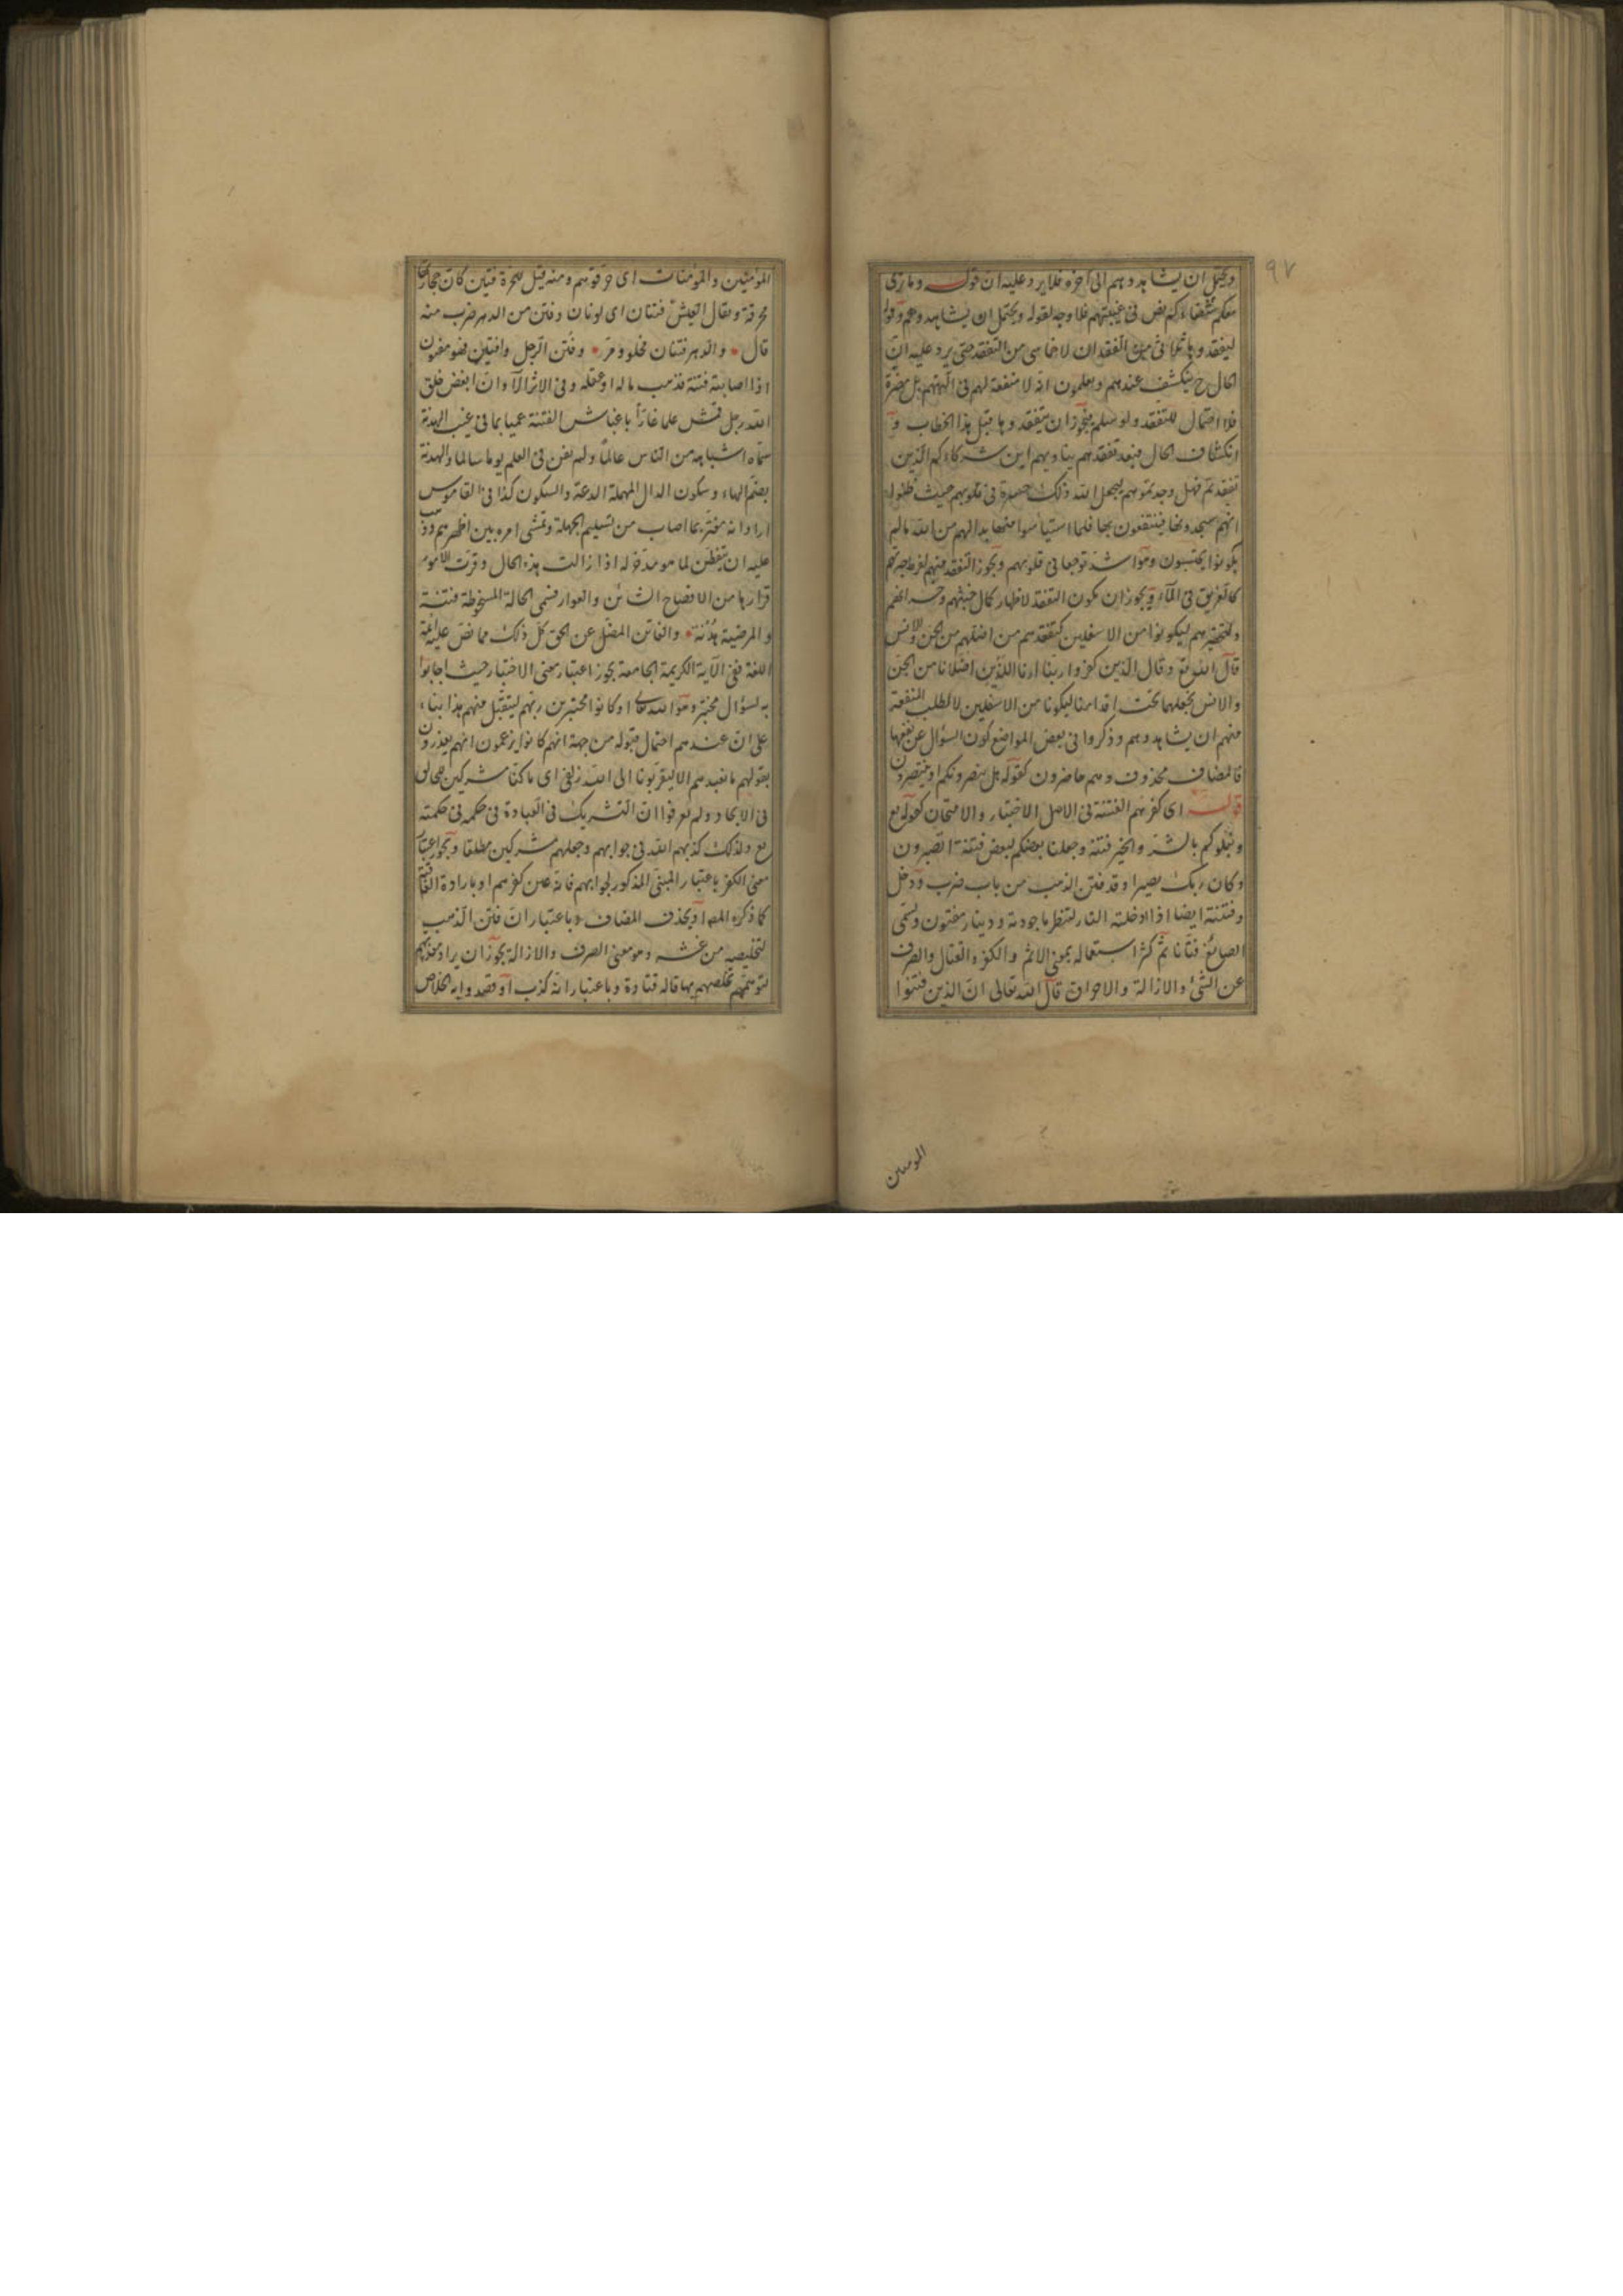 ٩٧
ويحتمل ان يشاهدوهم الى آخره فلا يرد عليه ان قوله وما نرى
معكم شفعاءكم نص في غيبتهم فلا وجه لقوله ويحتمل ان يشاهدوهم وقوله
ليفقدوها من الفقدان لا خماسي من التفقد حتى يرد عليه ان
الحال ح ينكشف عندهم ويعلمون انه لا منفعة لهم في آلهتهم بل مضرة
فلا احتمال للتفقد ولو سلم فيجوز ان يتفقدوها قبل هذا الخطاب و
انكشاف الحال فبعد تفقدهم يناديهم اين شركاءكم الذين
تفقدتم فهل وجدتموهم ليجعل الله ذلك حسرة في قلوبهم حيث ظنوا
انهم سيجدونها فينتفعون بها فلما استيأسوا منها بدا لهم من الله ما لم
يكونوا يحتسبون وهو اشد توجعا في قلوبهم ويجوز التفقد منهم لفرط حيرتهم
كالغريق في الماء ويجوز ان يكون التفقد لاظهار كمال خيبتهم وخسرانهم
ولتحقيرهم ليكونوا من الاسفلين كتفقدهم من اضلهم من الجن والانس
قال الله تع وقال الذين كفروا ربنا ارنا اللذين اضلانا من الجن
والانس نجعلهما تحت اقدامنا ليكونا من الاسفلين لا لطلب المنفعة
منهم ان يشاهدوهم وذكروا في بعض المواضع كون السؤال عن نفعها
فالمضاف محذوف وهم حاضرون كقوله هل ينصرونكم او ينتصرون
قوله اي كفرهم الفتنة في الاصل الاختبار والامتحان كقوله تع
ونبلوكم بالشر والخير فتنة وجعلنا بعضكم لبعض فتنة اتصبرون
وكان ربك بصيرا وقد فتن الذهب من باب ضرب ودخل
وفتنة ايضا اذا ادخلته النار لتنظر ما جودته ودينار مفتون ويسمى
الصائغ فتانا ثم كثر استعماله بمعنى الاثم والكفر والقتال والصرف
عن الشئ والازالة والاحراق قال الله تعالى ان الذين فتنوا
المومنين
المؤمنين والمؤمنات اى حرقوهم ومنه قيل للحرة فتين كان حجارتها
محرقة ويقال العيش فتنان اى لونان وفتن من الدهر ضرب منه
قال والدهر فتنان محلو ومر وفتن الرجل وافتتن فهو مفتون
اذا اصابته فتنة فذهب ماله او عقله وفي الاثر الا وان ابغض خلق
الله رجل قمش علما غارا باغباش الفتنة عميا بما في غيب الهدنة
سماه اشباهه من الناس عالما ولم يغن في العلم يوما سالما والهدنة
بضم الهاء وسكون الدال المهملة الدعة والسكون كذا في القاموس
اراد انه مغتر بما اصاب من تسليم الجهلة وتمشى امره بين اظهرهم وذهب
عليه ان يتفطن لما هو له اذا زالت هذه الحال وقرت الامور
قرارها من الافضاح الشائن والعوار فسمى الحالة المسخوطة فتنة
والمرضية هدنة والفاتن المضل عن الحق كل ذلك مما نص عليه ائمة
اللغة ففي الآية الكريمة الجامعة يجوز اعتبار معنى الاختبار حيث اجابوا
به لسؤال مختبر وهو الله تعالى او كانوا مختبرين ربهم ليتقبل منهم هذا بناء
على ان عندهم احتمال قبوله من جهة انهم كانوا يزعمون انهم يعذرون
بقولهم ما نعبدهم الا ليقربونا الى الله زلفى اى ما كنا مشركين
في الايجاد ولم يعرفوا ان التشريك في العبادة في حكمه في حكمته
تع ولذلك كذبهم الله في جوابهم وجعلهم مشركين مطلقا ويجوز اعتبار
معنى الكفر باعتبار المبنى المذكور لجوابهم فانه عين كفرهم او بارادة العاقبة
كما ذكره المص او بحذف المضاف وباعتبار ان فاتن الذهب
لتخليصه من غشه وهو معنى الصرف والازالة يجوز ان يراد معذرتهم
لتوهمهم تخلصهم بها قاله قتادة وباعتبار انه كذب او قصدوا به الخلاص